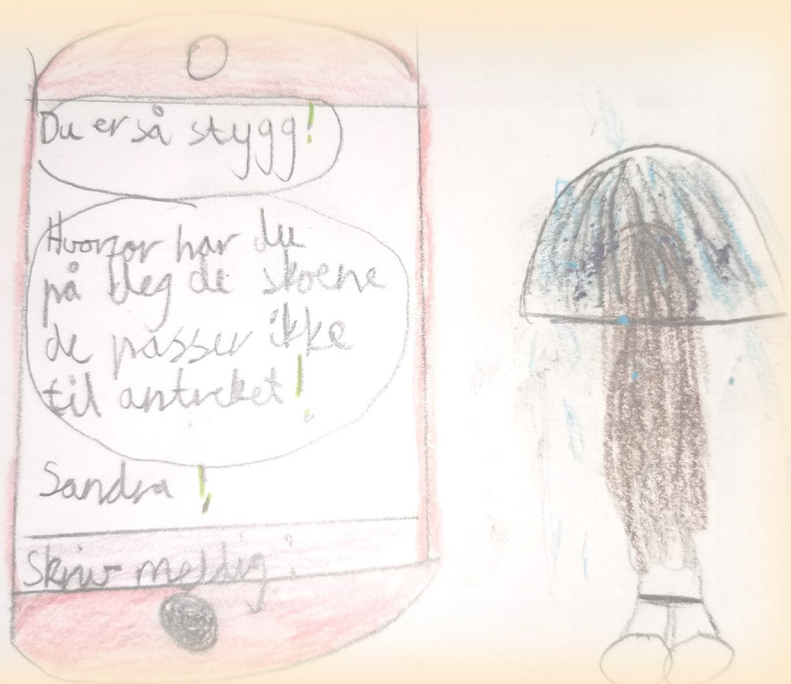 Du er så stygg!
Hvorfor har du
på deg de skoene
de passer ikke
til antreket!
Sandra!
Skriv meldig: